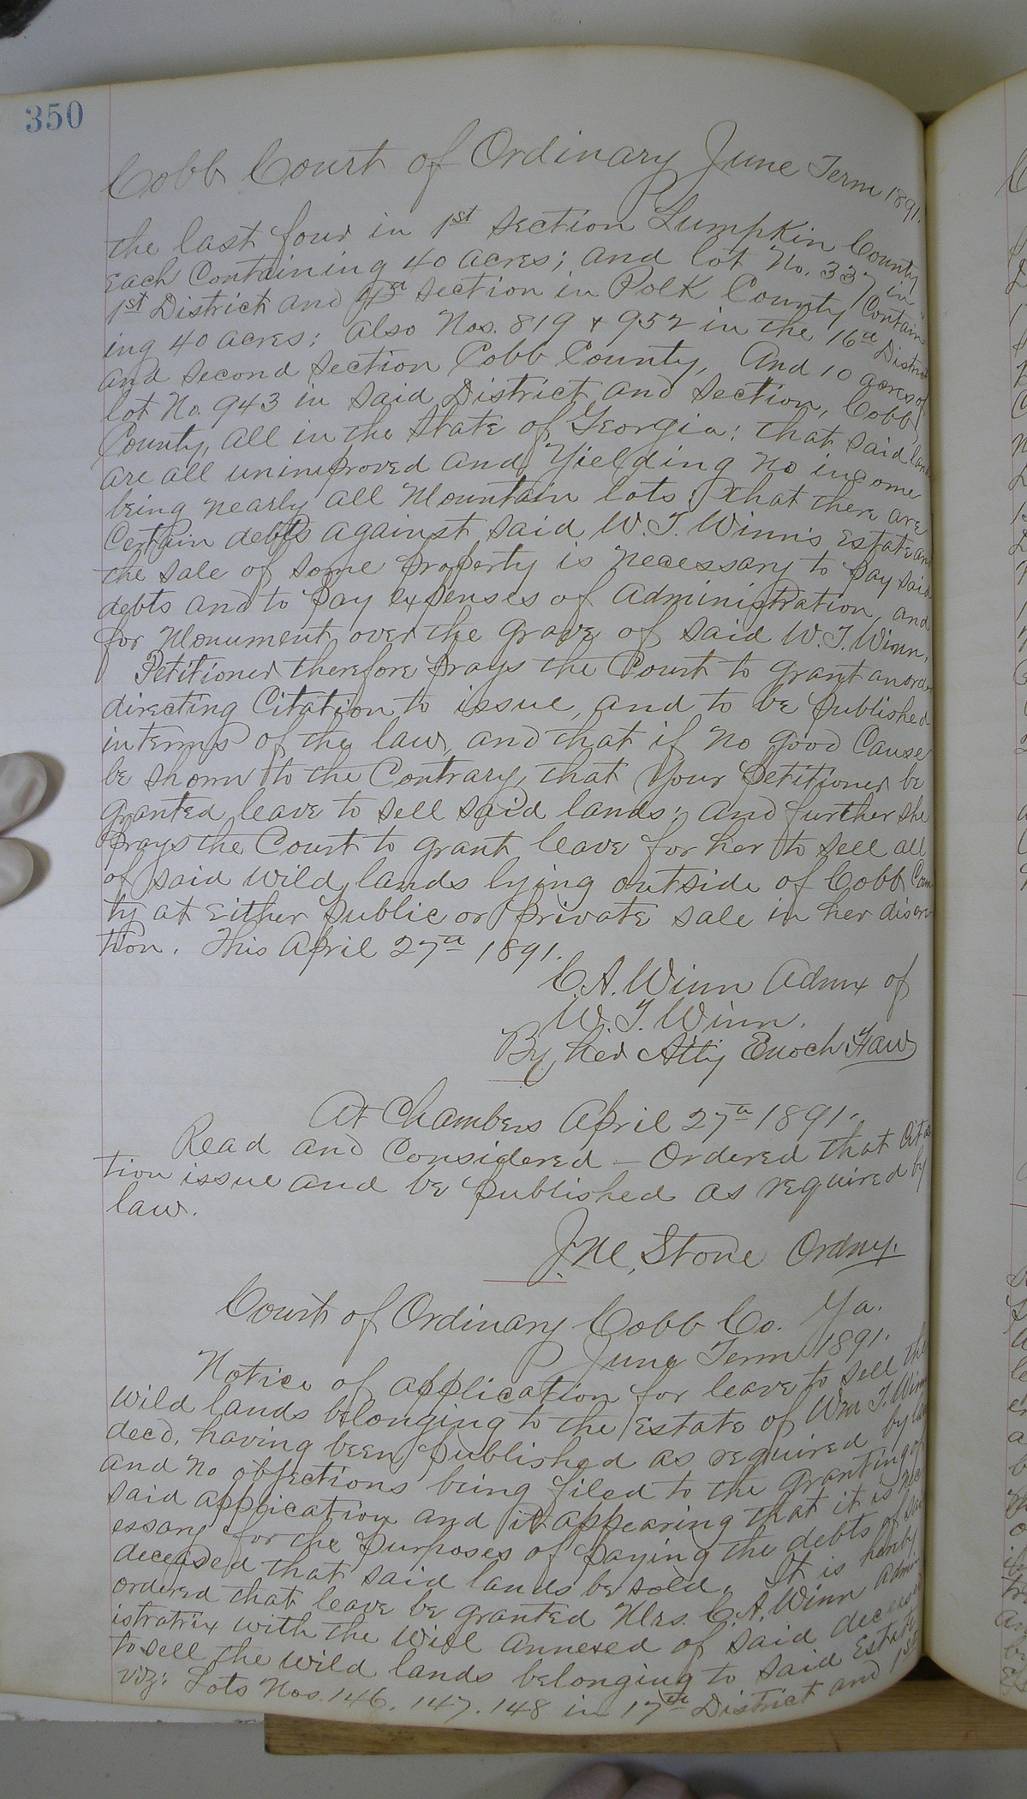 350
Cobb Court of Ordinary June Term 1891.
the last four in 1st Section Lumpkin County
each Containing 40 acres; and lot No. 337 in
1st District and Section in Polk County Contain
ing 40 acres; also Nos. 819 & 952 in the 16th District
and Second Section Cobb County, And 10 acres of
lot No. 943 in said District and Section, Cobb
County, all in the State of Georgia: that said land
are all unimproved and Yielding No income
being nearly all Mountain lots; that there are
Certain debts against said W. T. Winn's Estate and
the sale of some property is necessary to pay said
debts and to pay expenses of administration, and
for Monument over the grave of said W. T. Winn.
Petitioner therefore prays the Court to grant an order
directing Citation to issue, and to be published
in terms of the law, and that if no good Cause
be shown to the Contrary, that Your Petitioner be
granted leave to sell said lands; and further she
prays the Court to grant leave for her to sell all
of said wild lands lying outside of Cobb Coun
ty at either public or private sale in her discre
tion. This April 27th 1891.
C. A. Winn Admx of
W. T. Winn.
By her Atty Enoch Faw
At Chambers April 27th 1891.
Read and Considered - Ordered that Cita
tion issue and be published as required by
law.
J. M. Stone Ordny.
Court of Ordinary Cobb Co. Ga.
June Term 1891.
Notice of application for leave to sell the
wild lands belonging to the Estate of Wm T. Winn
decd. having been published as required by law
and no objections being filed to the granting of
said application and it appearing that it is nec
essary for the purposes of paying the debts of said
deceased that said lands be sold. It is hereby
ordered that leave be granted Mrs. C. A. Winn admin
istratrix with the will annexed of said deceased
to sell the wild lands belonging to said Estate
viz: Lots Nos. 146. 147. 148 in 17th District and 1st